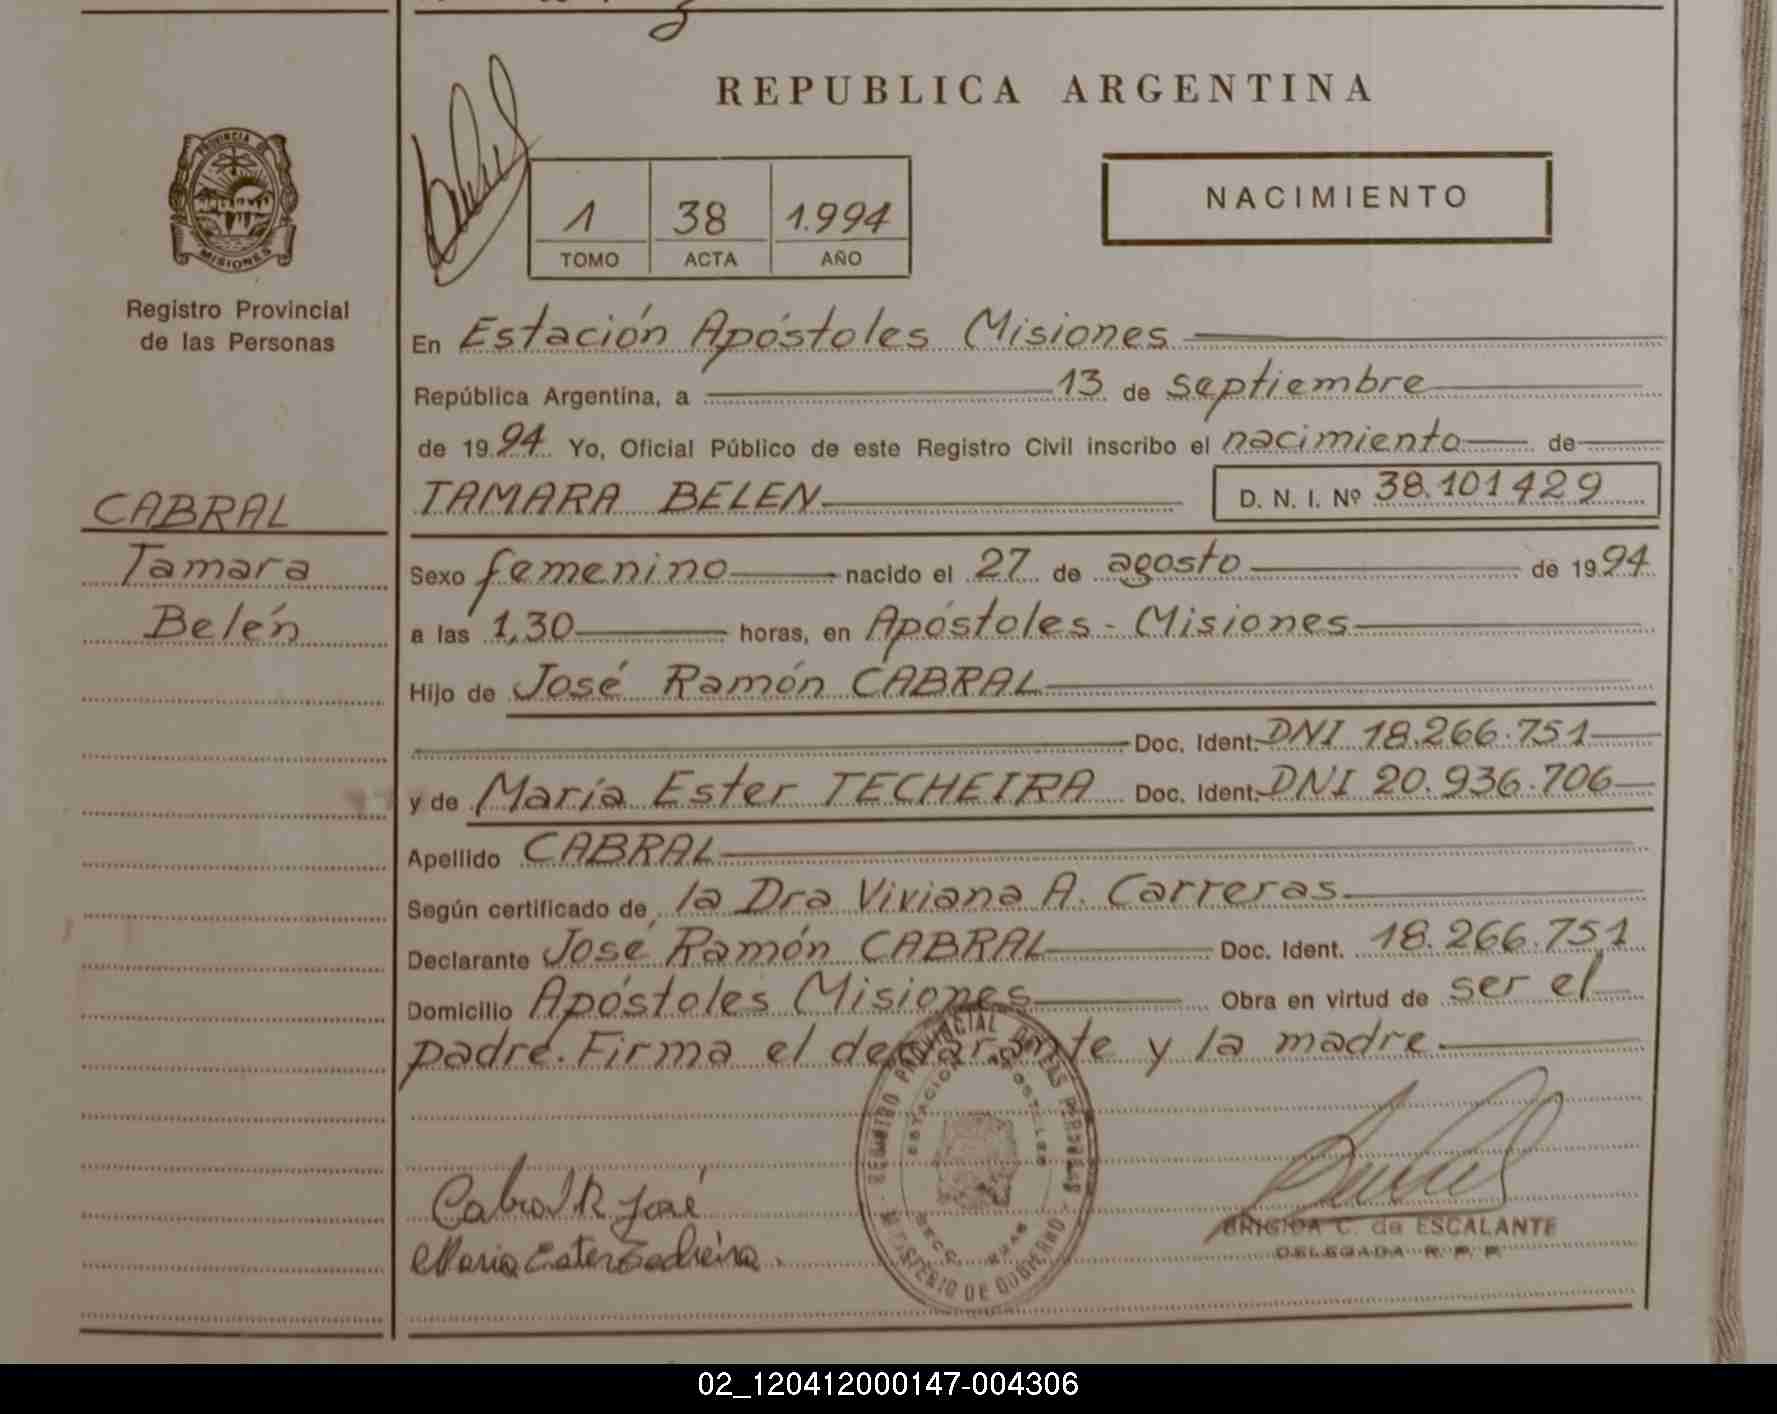 REPUBLICA ARGENTINA
PROVINCIA DE
MISIONES
Registro Provincial
de las Personas
1 38 1.994
TOMO ACTA AÑO
NACIMIENTO
En Estación Apóstoles Misiones
República Argentina, a 13 de septiembre
de 1994 Yo, Oficial Público de este Registro Civil inscribo el nacimiento de
TAMARA BELEN D. N. I. Nº 38.101429
CABRAL
Tamara
Belén
Sexo femenino nacido el 27 de agosto de 1994
a las 1,30 horas, en Apóstoles - Misiones
Hijo de José Ramón CABRAL
Doc. Ident. DNI 18.266.751
y de María Ester TECHEIRA Doc. Ident. DNI 20.936.706
Apellido CABRAL
Según certificado de la Dra Viviana A. Carreras
Declarante José Ramón CABRAL Doc. Ident. 18.266.751
Domicilio Apóstoles Misiones Obra en virtud de ser el
padre. Firma el declarante y la madre
REGISTRO PROVINCIAL DE LAS PERSONAS
ESTACION APOSTOLES
MINISTERIO DE GOBIERNO
Cabral R José
Maria Ester Techeira.
BRIGIDA C. de ESCALANTE
DELEGADA R. P. P.
02_120412000147-004306